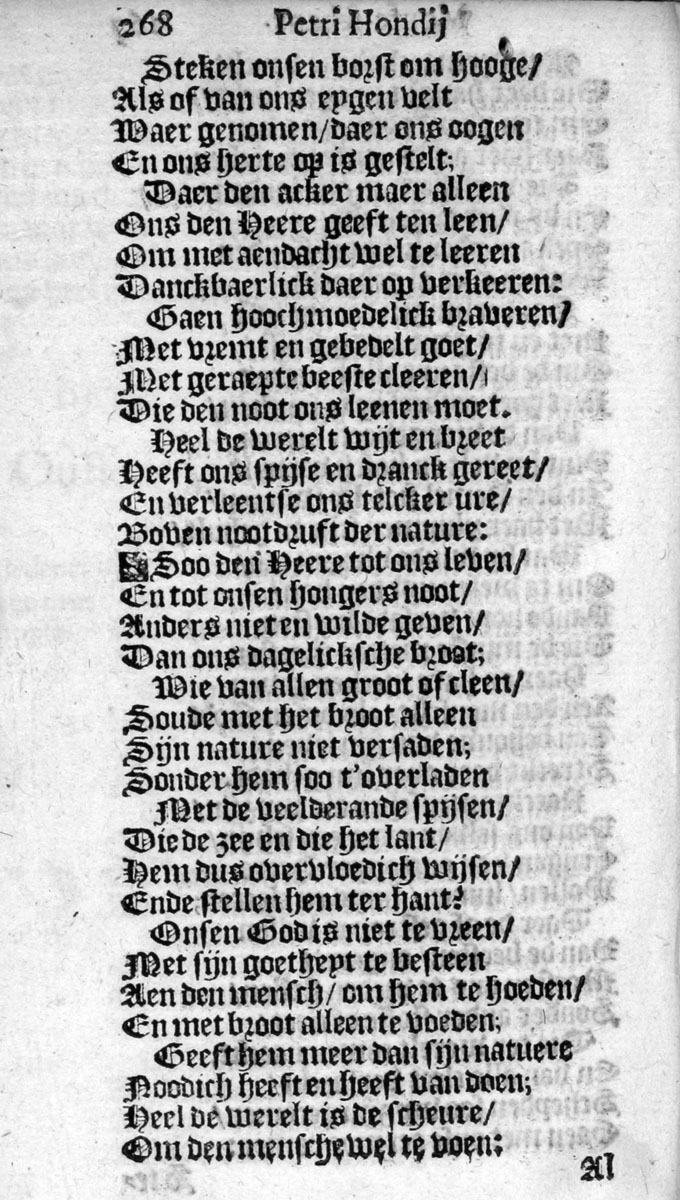 268 Petri Hondij
Steken onsen borst om hooge/
Als of van ons eygen velt
Waer genomen/daer ons oogen
En ons herte op is gestelt;
Daer den acker maer alleen
Ons den Heere geeft ten leen/
Om met aendacht wel te leeren
Danckbaerlick daer op verkeeren:
Gaen hoochmoedelick braveren/
Met vremt en gebedelt goet/
Met geraepte beeste cleeren/
Die den noot ons leenen moet.
Heel de werelt wijt en breet
Heeft ons spijse en dranck gereet/
En verleentse ons telcker ure/
Boven nootdruft der nature:
Soo den Heere tot ons leven/
En tot onsen hongers noot/
Anders niet en wilde geven/
Dan ons dagelicksche broot;
Wie van allen groot of cleen/
Soude met het broot alleen
Sijn nature niet versaden;
Sonder hem soo t'overladen
Met de veelderande spijsen/
Die de zee en die het lant/
Hem dus overvloedich wijsen/
Ende stellen hem ter hant?
Onsen God is niet te vreen/
Met sijn goetheyt te besteen
Aen den mensch/ om hem te hoeden/
En met broot alleen te voeden;
Geeft hem meer dan sijn natuere
Noodich heeft en heeft van doen;
Heel de werelt is de scheure/
Om den mensche wel te voen:
Al